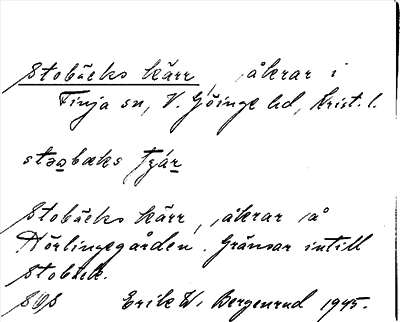 Stobäcks kärr, åkrar i
Finja sn, V. Göinge hd, Krist. l.
stəobæks tɟár
Stobäcks kärr, åkrar på
Hörlingegården. Gränsar intill
Stobäck.
Erik W. Bergenrud 1945.